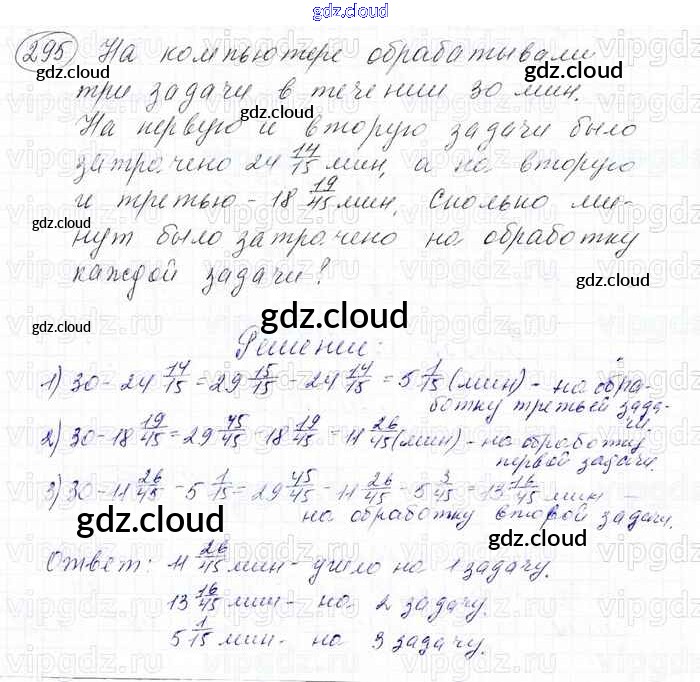 gdz.cloud
295 На компьютере обрабатывали
три задачи в течении 30 мин.
На первую и вторую задачи было
затрачено 24 14/15 мин, а на вторую
и третью - 18 19/45 мин. Сколько ми-
нут было затрачено на обработку
каждой задачи?
gdz.cloud
Решение:
1) 30 - 24 14/15 = 29 15/15 - 24 14/15 = 5 1/15 (мин) - на обра-
ботку третьей зада-
чи.
2) 30 - 18 19/45 = 29 45/45 - 18 19/45 = 11 26/45 (мин) - на обработку
первой задачи.
3) 30 - 11 26/45 - 5 1/15 = 29 45/45 - 11 26/45 - 5 3/45 = 13 16/45 мин -
на обработку второй задачи.
gdz.cloud
Ответ: 11 26/45 мин - ушло на 1 задачу.
13 16/45 мин - на 2 задачу.
5 1/15 мин - на 3 задачу.